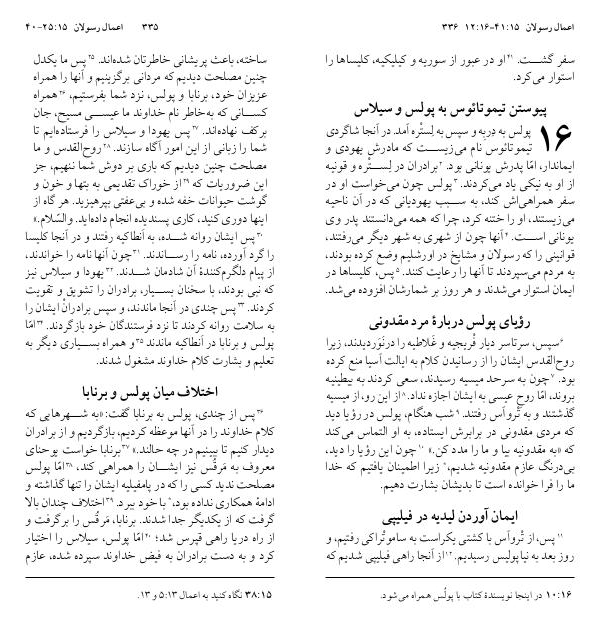 اعمال رسولان ۲۵:۱۵-۴۰ ۳۳۵
ساخته، باعث پریشانی خاطرتان شده‌اند. ۲۵پس ما یکدل
چنین مصلحت دیدیم که مردانی برگزینیم و آنها را همراه
عزیزان خود، برنابا و پولس، نزد شما بفرستیم، ۲۶همراه
کسانی که به‌خاطر نام خداوند ما عیسی مسیح، جان
برکف نهاده‌اند. ۲۷پس یهودا و سیلاس را فرستاده‌ایم تا
شما را زبانی از این امور آگاه سازند. ۲۸روح‌القدس و ما
مصلحت چنین دیدیم که باری بر دوش شما ننهیم، جز
این ضروریات که ۲۹از خوراک تقدیمی به بتها و خون و
گوشت حیوانات خفه شده و بی‌عفتی بپرهیزید. هر گاه از
اینها دوری کنید، کاری پسندیده انجام داده‌اید. والسّلام.»
۳۰پس ایشان روانه شده، به اَنطاکیه رفتند و در آنجا کلیسا
را گرد آورده، نامه را رساندند. ۳۱چون آنها نامه را خواندند،
از پیام دلگرم‌کنندهٔ آن شادمان شدند. ۳۲یهودا و سیلاس نیز
که نبی بودند، با سخنان بسیار، برادران را تشویق و تقویت
کردند. ۳۳پس چندی در آنجا ماندند، و سپس برادرانْ ایشان را
به سلامت روانه کردند تا نزد فرستندگان خود بازگردند. ۳۴امّا
پولس و برنابا در اَنطاکیه ماندند ۳۵و همراه بسیاری دیگر به
تعلیم و بشارت کلام خداوند مشغول شدند.
اختلاف میان پولس و برنابا
۳۶پس از چندی، پولس به برنابا گفت: «به شهرهایی که
کلام خداوند را در آنها موعظه کردیم، بازگردیم و از برادران
دیدار کنیم تا ببینیم در چه حالند.» ۳۷برنابا خواست یوحنای
معروف به مَرقُس نیز ایشان را همراهی کند، ۳۸امّا پولس
مصلحت ندید کسی را که در پامفیلیه ایشان را تنها گذاشته و
ادامهٔ همکاری نداده بود،* با خود ببرد. ۳۹اختلاف چندان بالا
گرفت که از یکدیگر جدا شدند. برنابا، مَرقُس را برگرفت و
از راه دریا راهی قپرس شد؛ ۴۰امّا پولس، سیلاس را اختیار
کرد و به دست برادران به فیض خداوند سپرده شده، عازم
۳۸:۱۵ نگاه کنید به اعمال ۵:۱۳ و ۱۳.
اعمال رسولان ۴۱:۱۵-۱۲:۱۶ ۳۳۶
سفر گشت. ۴۱او در عبور از سوریه و کیلیکیه، کلیساها را
استوار می‌کرد.
پیوستن تیموتائوس به پولس و سیلاس
۱۶ پولس به دِربِه و سپس به لِستْره آمد. در آنجا شاگردی
تیموتائوس نام می‌زیست که مادرش یهودی و
ایماندار، امّا پدرش یونانی بود. ۲برادران در لِستْره و قونیه
از او به نیکی یاد می‌کردند. ۳پولس چون می‌خواست او در
سفر همراهی‌اش کند، به سبب یهودیانی که در آن ناحیه
می‌زیستند، او را ختنه کرد، چرا که همه می‌دانستند پدر وی
یونانی است. ۴آنها چون از شهری به شهر دیگر می‌رفتند،
قوانینی را که رسولان و مشایخ در اورشلیم وضع کرده بودند،
به مردم می‌سپردند تا آنها را رعایت کنند. ۵پس، کلیساها در
ایمان استوار می‌شدند و هر روز بر شمارشان افزوده می‌شد.
رؤیای پولس دربارهٔ مرد مقدونی
۶سپس، سرتاسر دیار فَریجیه و غَلاطیه را درنَوَردیدند، زیرا
روح‌القدس ایشان را از رسانیدن کلام به ایالت آسیا منع کرده
بود. ۷چون به سرحد میسیه رسیدند، سعی کردند به بیطینیه
بروند، امّا روح عیسی به ایشان اجازه نداد. ۸از این رو، از میسیه
گذشتند و به تْروآس رفتند. ۹شب هنگام، پولس در رؤیا دید
که مردی مقدونی در برابرش ایستاده، به او التماس می‌کند
که «به مقدونیه بیا و ما را مدد کن.» ۱۰چون این رؤیا را دید،
بی‌درنگ عازم مقدونیه شدیم،* زیرا اطمینان یافتیم که خدا
ما را فرا خوانده است تا بدیشان بشارت دهیم.
ایمان آوردن لیدیه در فیلیپی
۱۱پس، از تْروآس با کشتی یکراست به ساموتْراکی رفتیم، و
روز بعد به نیاپولیس رسیدیم. ۱۲از آنجا راهی فیلیپی شدیم که
۱۰:۱۶ در اینجا نویسندهٔ کتاب با پولُس همراه می‌شود.